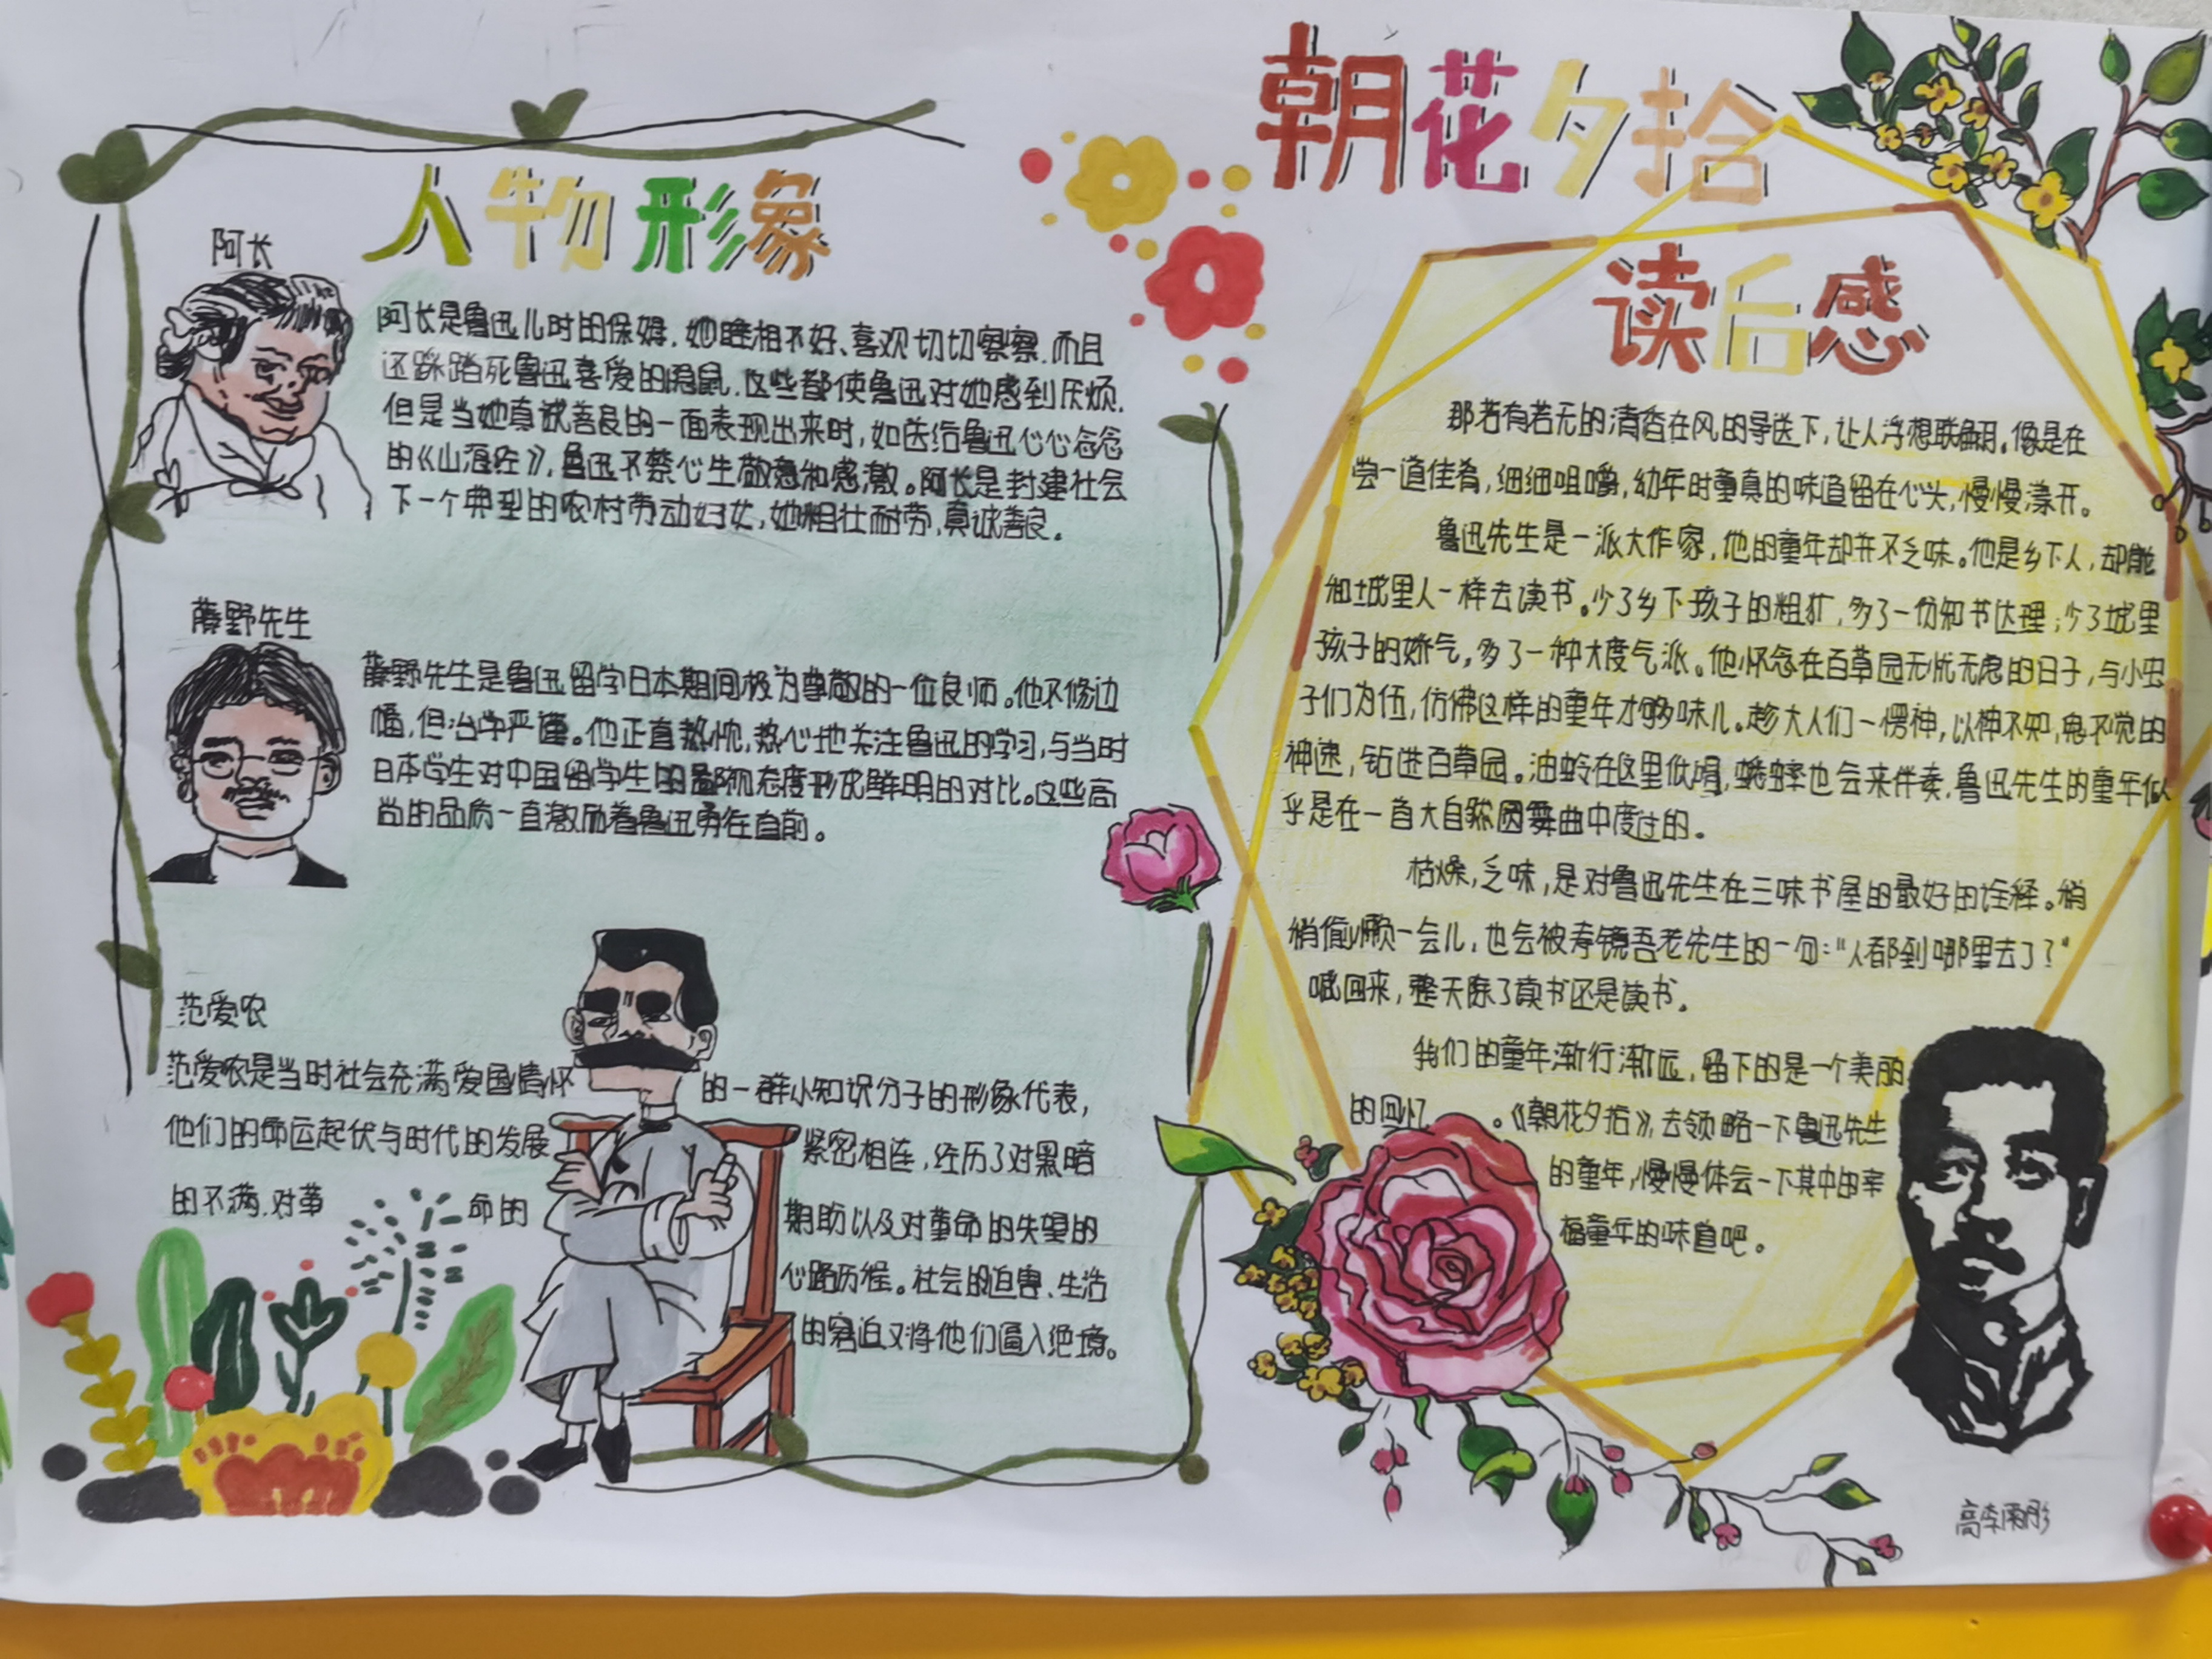 朝花夕拾
人物形象
阿长
阿长是鲁迅儿时的保姆，她睡相不好、喜欢切切察察，而且
还踩踏死鲁迅喜爱的隐鼠，这些都使鲁迅对她感到厌烦，
但是当她真诚善良的一面表现出来时，如送给鲁迅心心念念
的《山海经》，鲁迅不禁心生敬意和感激。阿长是封建社会
下一个典型的农村劳动妇女，她粗壮耐劳，真诚善良。
藤野先生
藤野先生是鲁迅留学日本期间极为尊敬的一位良师。他不修边
幅，但治学严谨。他正直热忱，热心地关注鲁迅的学习，与当时
日本学生对中国留学生的鄙视态度形成鲜明的对比。这些高
尚的品质一直激励着鲁迅勇往直前。
范爱农
范爱农是当时社会充满爱国情怀的一群小知识分子的形象代表，
他们的命运起伏与时代的发展紧密相连，经历了对黑暗
的不满，对革命的期盼以及对革命的失望的
心路历程。社会的迫害、生活
的窘迫又将他们逼入绝境。
读后感
那若有若无的清香在风的导送下，让人浮想联翩。像是在
尝一道佳肴，细细咀嚼，幼年时童真的味道留在心头，慢慢漾开。
鲁迅先生是一派大作家，他的童年却并不乏味。他是乡下人，却能
和城里人一样去读书。少了乡下孩子的粗犷，多了一份知书达理；少了城里
孩子的娇气，多了一种大度气派。他怀念在百草园无忧无虑的日子，与小虫
子们为伍，仿佛这样的童年才够味儿。趁大人们一愣神，以神不知，鬼不觉的
神速，钻进百草园。油蛉在这里低唱，蟋蟀也会来伴奏，鲁迅先生的童年似
乎是在一首大自然圆舞曲中度过的。
枯燥，乏味，是对鲁迅先生在三味书屋的最好的诠释。稍
稍偷懒一会儿，也会被寿镜吾老先生的一句：“人都到哪里去了？”
喊回来，整天除了读书还是读书。
我们的童年渐行渐远，留下的是一个美丽
的回忆。《朝花夕拾》，去领略一下鲁迅先生
的童年，慢慢体会一下其中的幸
福童年的味道吧。
高李雨彤